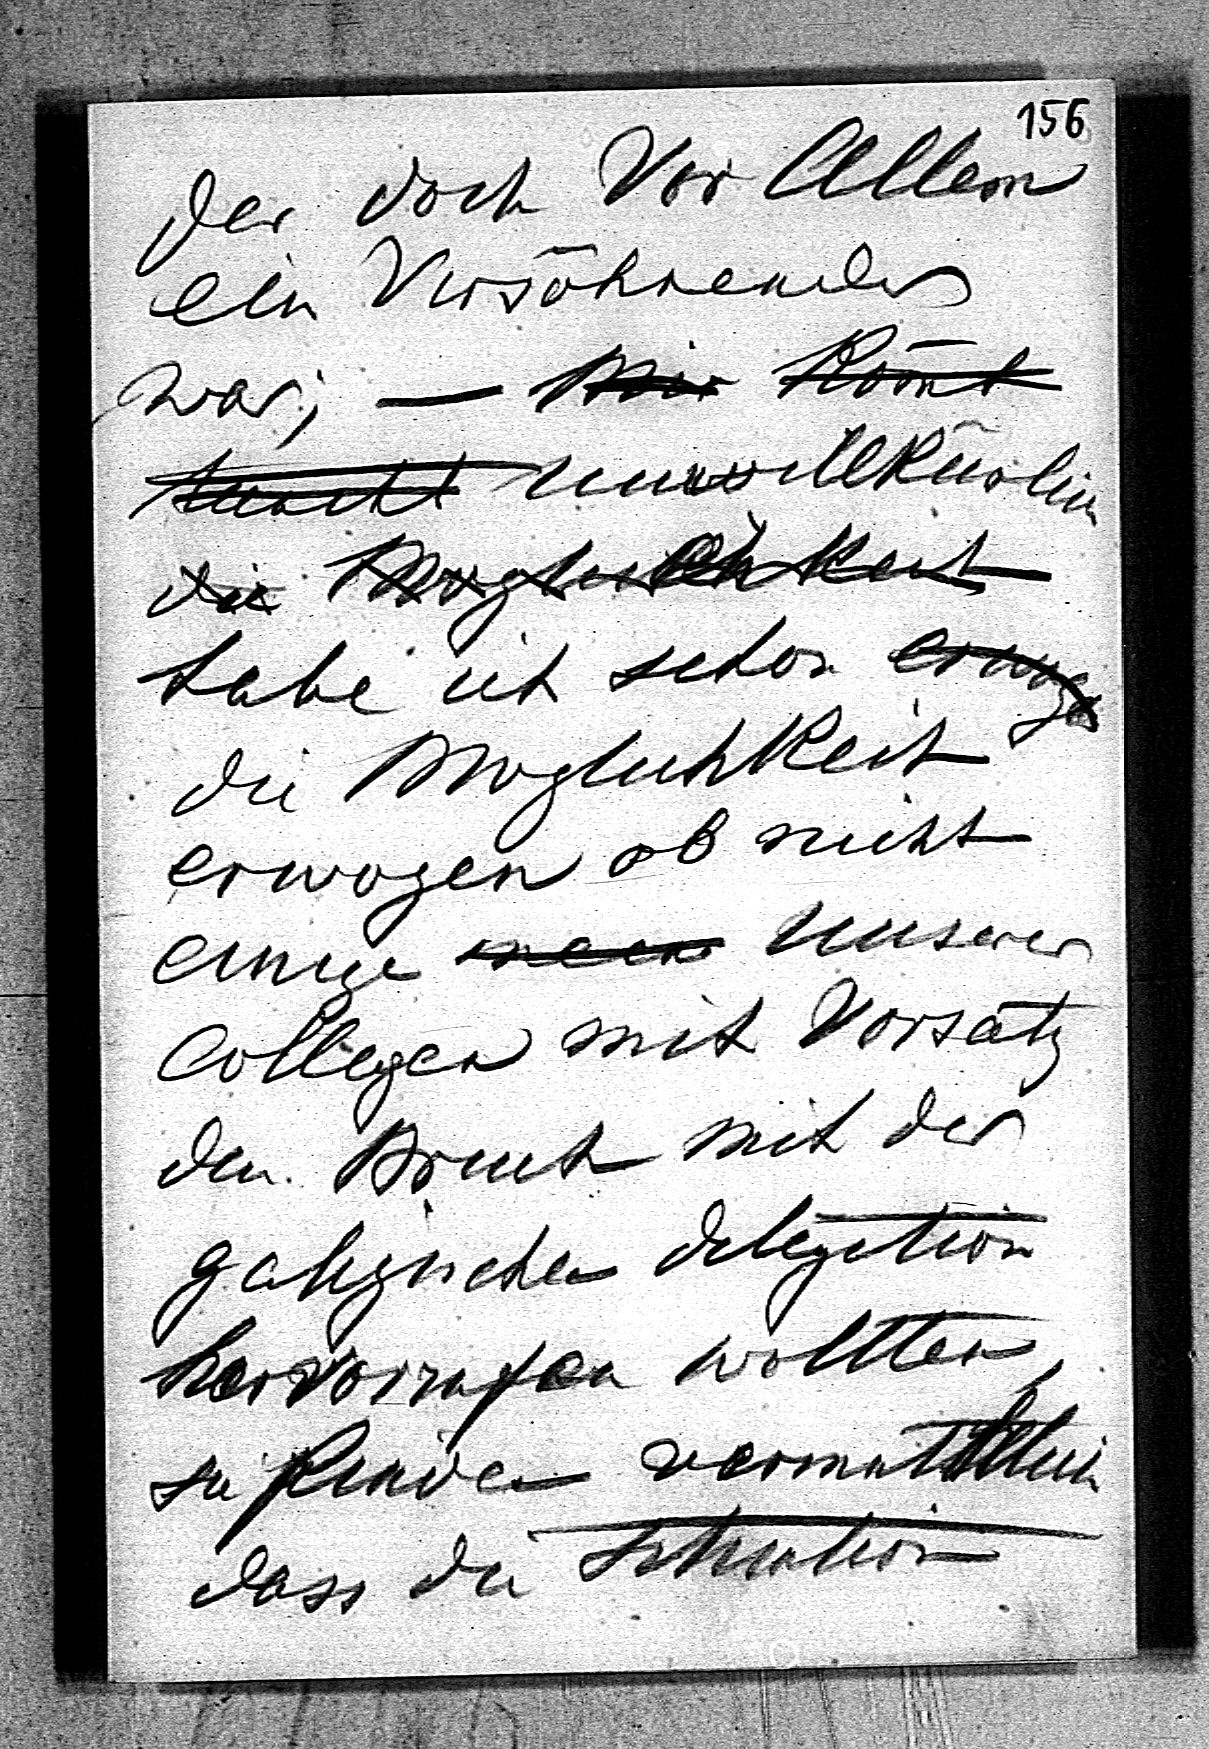 156
der doch Vor Allem
ein Versöhnender
war; — Mir kömt
unwillkürlich
die Möglichkeit
habe ich schon erwogen
die Moglichkeit
erwogen ob nicht
einige unserer
Collegen mit Vorsatz
den Bruch mit der
galizischen delegation
hervorrufen wollten,
sie finden vermuthlich
dass die Situation